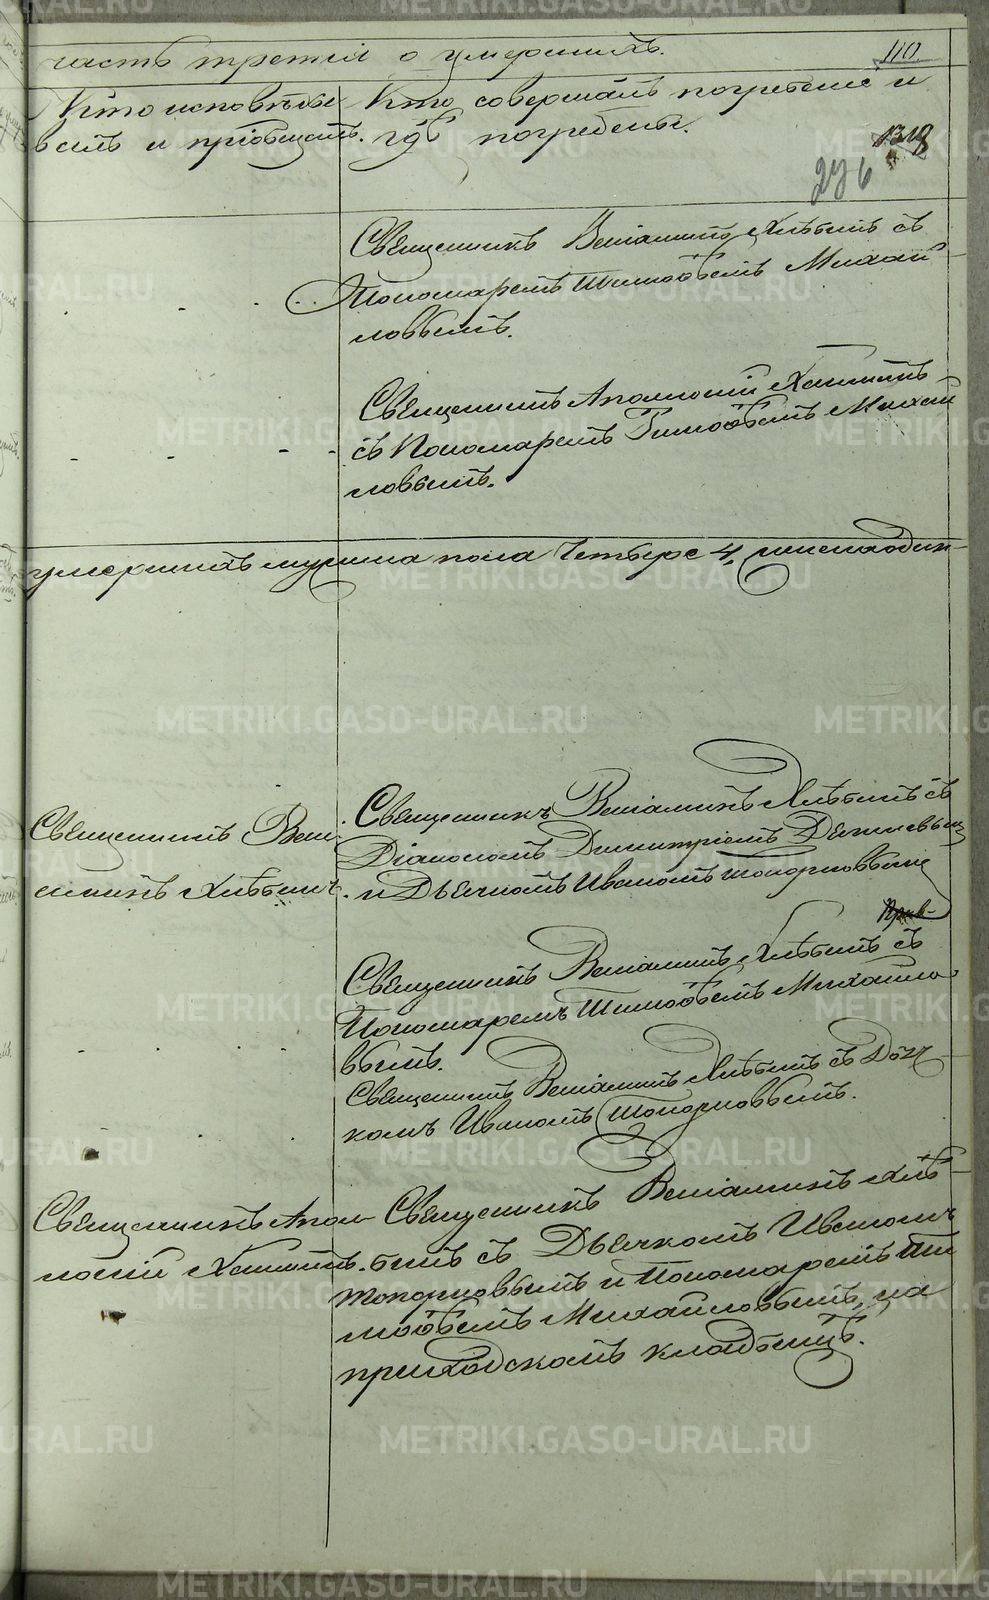 часть третія о умершихъ.
110.
Кто исповѣды
валъ и пріобщалъ.
Кто совершалъ погребеніе и
гдѣ погребены.
1318
276
Священникъ Веніаминъ Хлѣбинъ съ
Пономаремъ Тимоѳеемъ Михай
ловымъ.
Священникъ Аполлосій Хашинъ
съ Пономаремъ Тимоѳеемъ Михай
ловымъ.
умершихъ мужеска пола Четыре 4,
Священникъ Вені
аминъ Хлѣбинъ.
Священникъ Веніаминъ Хлѣбинъ съ
Діакономъ Димитріемъ
и Дьячкомъ Иваномъ Топорковымъ
Священникъ Веніаминъ Хлѣбинъ съ
Пономаремъ Тимоѳеемъ Михайло
вымъ.
Священникъ Веніаминъ Хлѣбинъ съ Дьяч
комъ Иваномъ Топорковымъ.
Священникъ Апол
лосій Хашинъ.
Священникъ Веніаминъ Хлѣ
бинъ съ Дьячкомъ Иваномъ
Топорковымъ и Пономаремъ Ти
моѳеемъ Михайловымъ, на
приходскомъ кладбищѣ.
METRIKI.GASO-URAL.RU